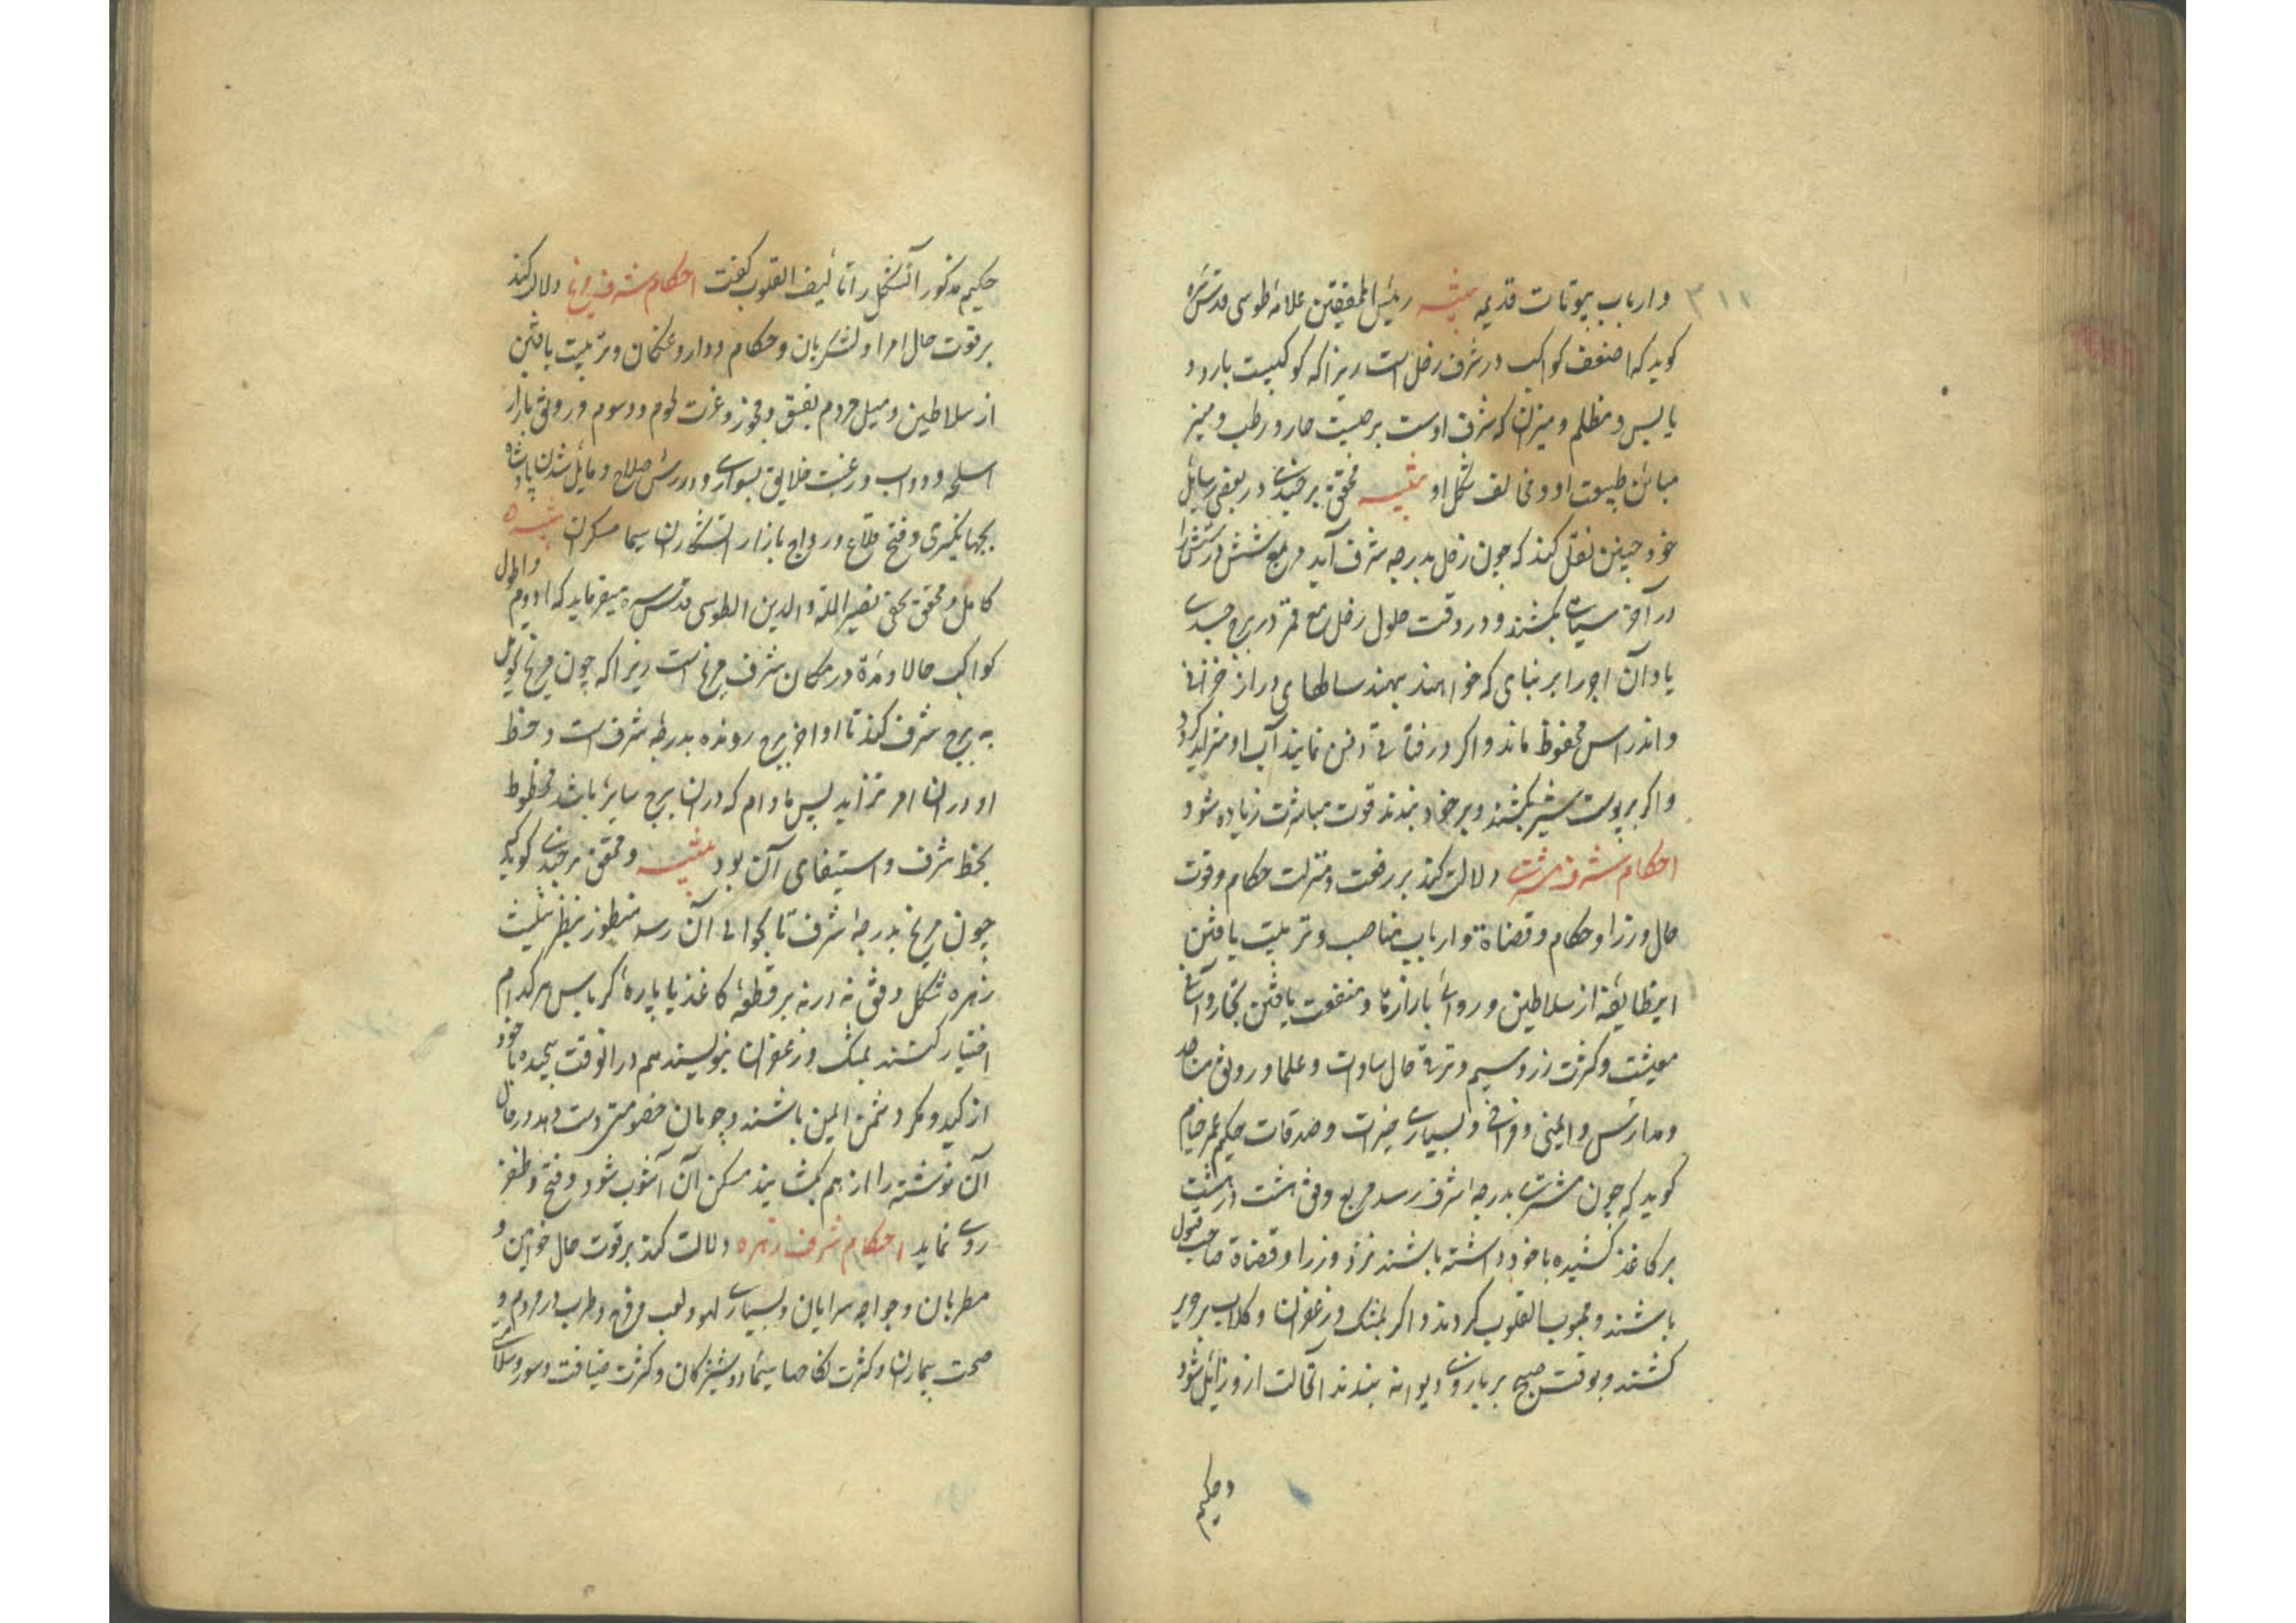 ۳۱۱
و ارباب بیوتات قدیمه تنبیه رئیس المحققین علامهٔ طوسی قدس سره
کوید که اضعف کواکب در شرف زحل است زیرا که کوکبیست بارد و
یابس و مظلم و میزان که شرف اوست برجیست حار و رطب و منیر
مباین طبیعت او و مخالف شکل او تنبیه محقق برجندی در بعضی رسایل
خود چنین نقل کند که چون زحل بدرجه شرف آید مربع شش در شش را
در آخر کشند و در وقت حلول زحل مع قمر در برج جسدی
یا و آن اجر را بر بنای که خواهند نهند سالهای دراز از خرابی
و اندراس محفوظ ماند و اکر در قناتی دفن نمایند آب او متزاید کردد
و اکر بر پوست شیر کشند و بر خود بندند قوت مباشرت زیاده شود
احکام شرف مشتری دلالت کند بر رفعت و منزلت حکام و قوت
حال وزرا و حکام و قضاة و ارباب مناصب و تربیت یافتن
اینطایفه از سلاطین و روائی بازارها و منفعت یافتن تجار و
معیشت و کثرت زر و سیم و ترقی حال سادات و علما و رونق مساجد
و مدارس و ایمنی و فراخی و بسیاری خیرات و صدقات حکیم عمر خیام
کوید که چون مشتری بدرجه شرف رسد مربع وفق هشت در هشت
بر کاغذ کشیده با خود داشته باشند نزد وزرا و قضاة صاحب قبول
باشند و محبوب القلوب کردند و اکر بمشک و زعفران و کلاب بر حریر
کشند و بوقت صبح بر بازوی دیوانه بندند آنحالت ازو زایل شود
و حکیم
حکیم مذکور آنشکل را تالیف القلوب کفت احکام شرف مریخ دلالت کند
بر قوت حال امرا و لشکریان و حکام و داروغکان و تربیت یافتن
از سلاطین و میل مردم بفسق و فجور و عزت لحوم و دسوم و رونق بازار
اسلحه و دواب و رغبت خلایق بسواری و ورزش صلاح و مایل شدن پادشاه
بجهانکیری و فتح قلاع و رواج بازار آتشکاران سیما مسکران تنبیه
کامل و محقق بحق نصیر الملة و الدین الطوسی قدس سره میفرماید که ادوم و اطول
کواکب حالا و مدة در مکان شرف مریخ است زیرا که چون مریخ تحویل
به برج شرف کند تا اواخر برج رونده بدرجهٔ شرف است و حظ
او در آن امر تزاید پس مادام که در آن برج سایر باشد محظوظ
بحظ شرف و استیفای آن بود تنبیه و محقق برجندی کوید که
چون مریخ بدرجهٔ شرف تا بحوالی آن رسد منظور بنظر تثلیث
زهره شکل وفق نه در نه بر قطعهٔ کاغذ یا پارهٔ کرباس هر کدام
اختیار کنند بمشک و زعفران بنویسند هم در آنوقت پیچیده با خود
از کید و مکر دشمن ایمن باشند و چو بآن خصومتی دست دهد در حال
آن نوشته را از هم بکشایند مسکن آن آشوب شود و فتح و ظفر
روی نماید احکام شرف زهره دلالت کند بر قوت حال خواتین و
مطربان و خواجه سرایان و بسیاری لهو و لعب و فرح و طرب در مردم و
صحت بیماران و کثرت نکاحها سیما دوشیزکان و کثرت ضیافت و سور